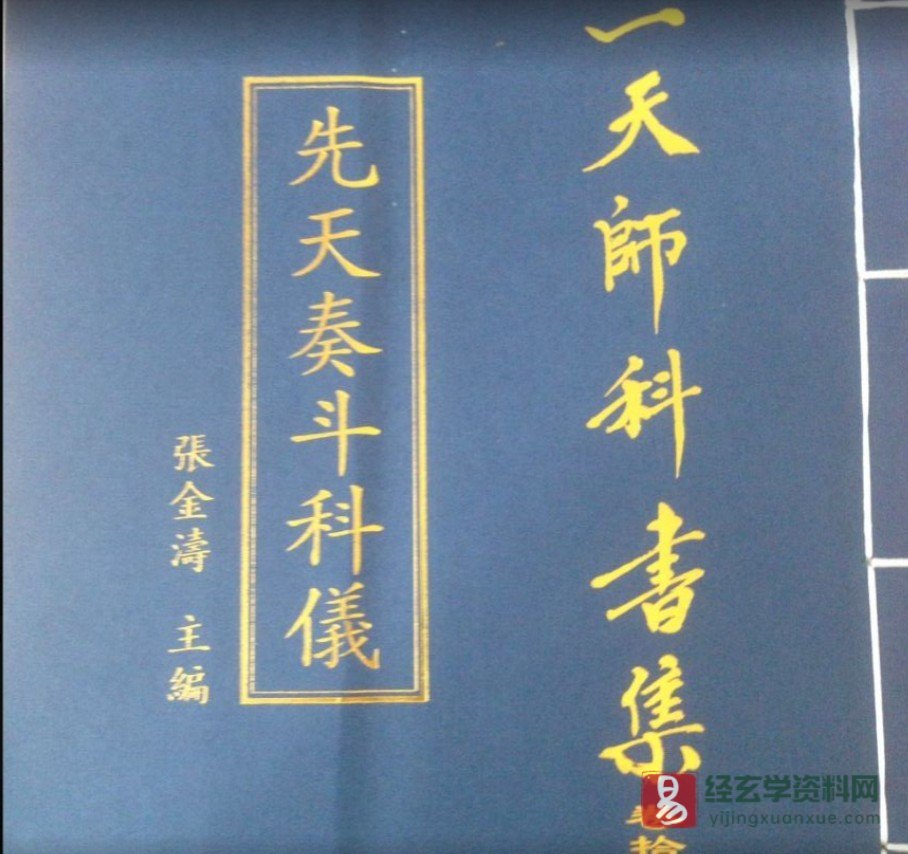 一天師科書集
卷拾
先天奏斗科儀
張金濤 主編
易 经玄学资料网
yijingxuanxue.com